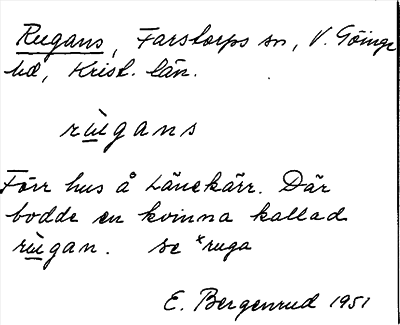 Rugans, Farstorps sn, V. Göinge
hd, Krist. län.
rùgans
Förr hus å Länekärr. Där
bodde en kvinna kallad
rùgan. se *ruga
E. Bergenrud 1951